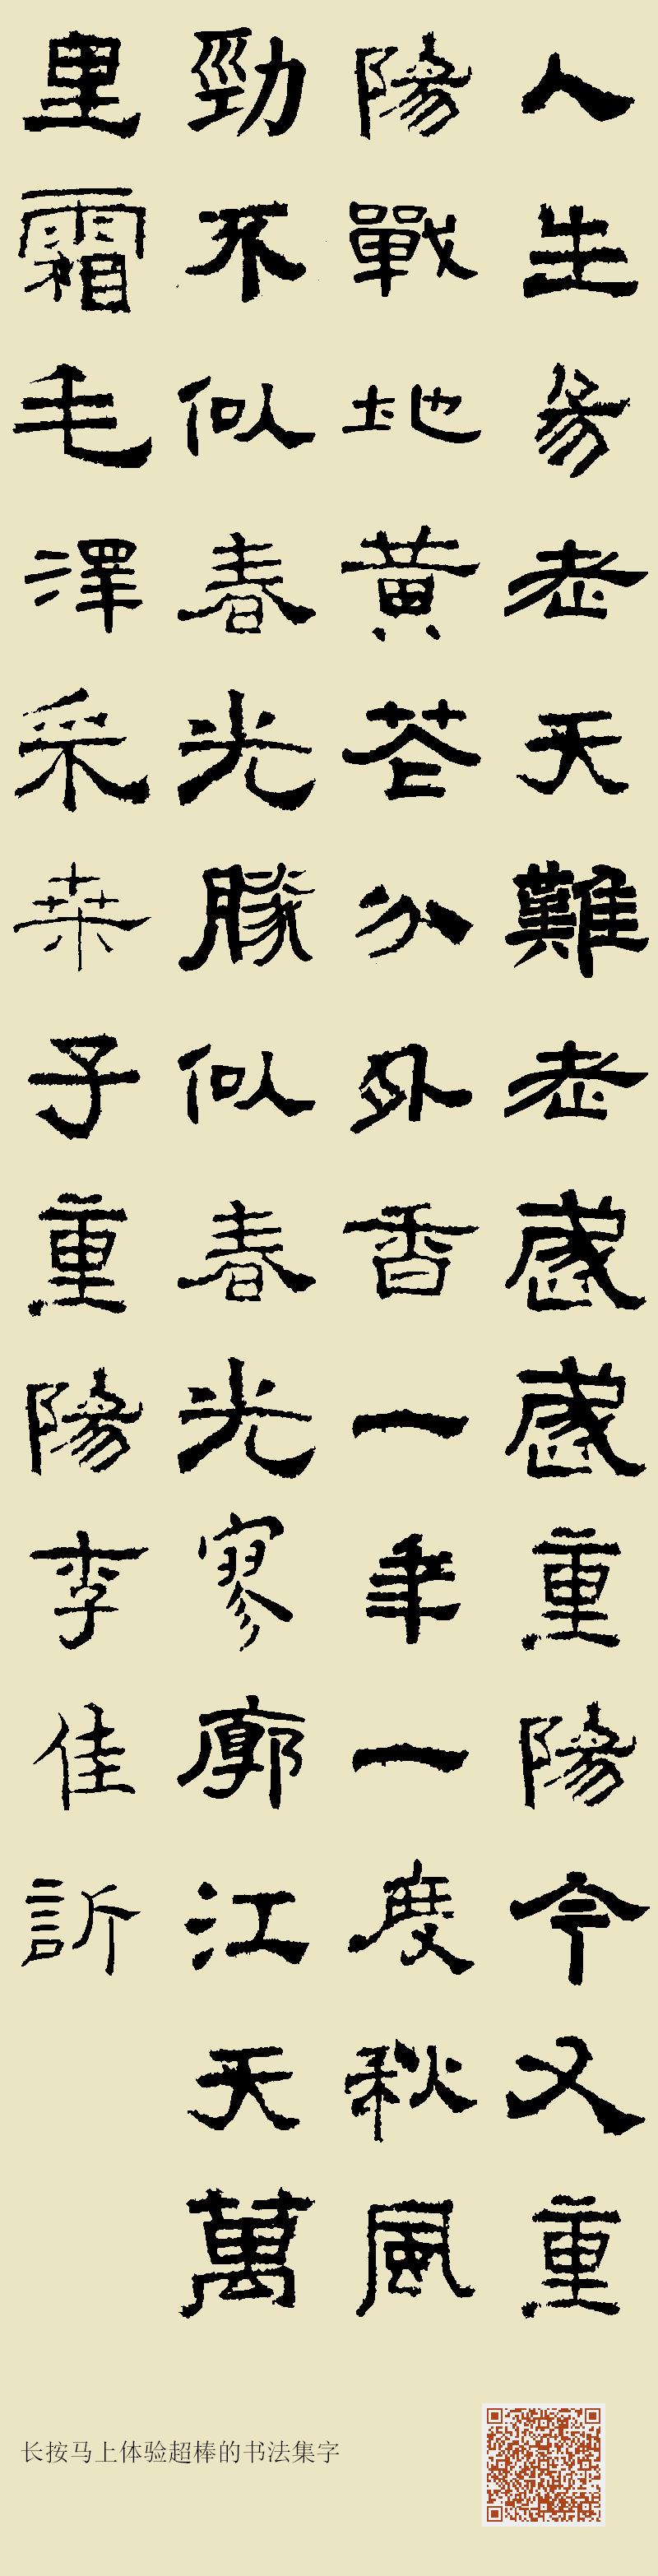 人生易老天難老歲歲重陽今又重
陽戰地黃花分外香一年一度秋風
勁不似春光勝似春光寥廓江天萬
里霜毛澤東采桑子重陽李佳訢
长按马上体验超棒的书法集字